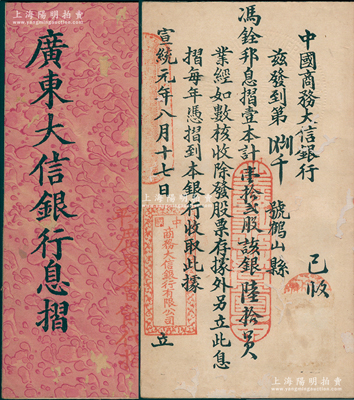 上海陽明拍賣
www.sh-yangming.com
廣東大信銀行息摺
中國商務大信銀行
茲發到第 捌千 號鶴山縣 已收
馮銓邦息摺壹本計 拾弍股該銀陸拾員
業經如數核收除發股票存據外另立此息
摺每年憑摺到本銀行收取此據
宣統元年八月十七日 立
中國商務大信銀行有限公司
上海陽明拍賣
www.sh-yangming.com